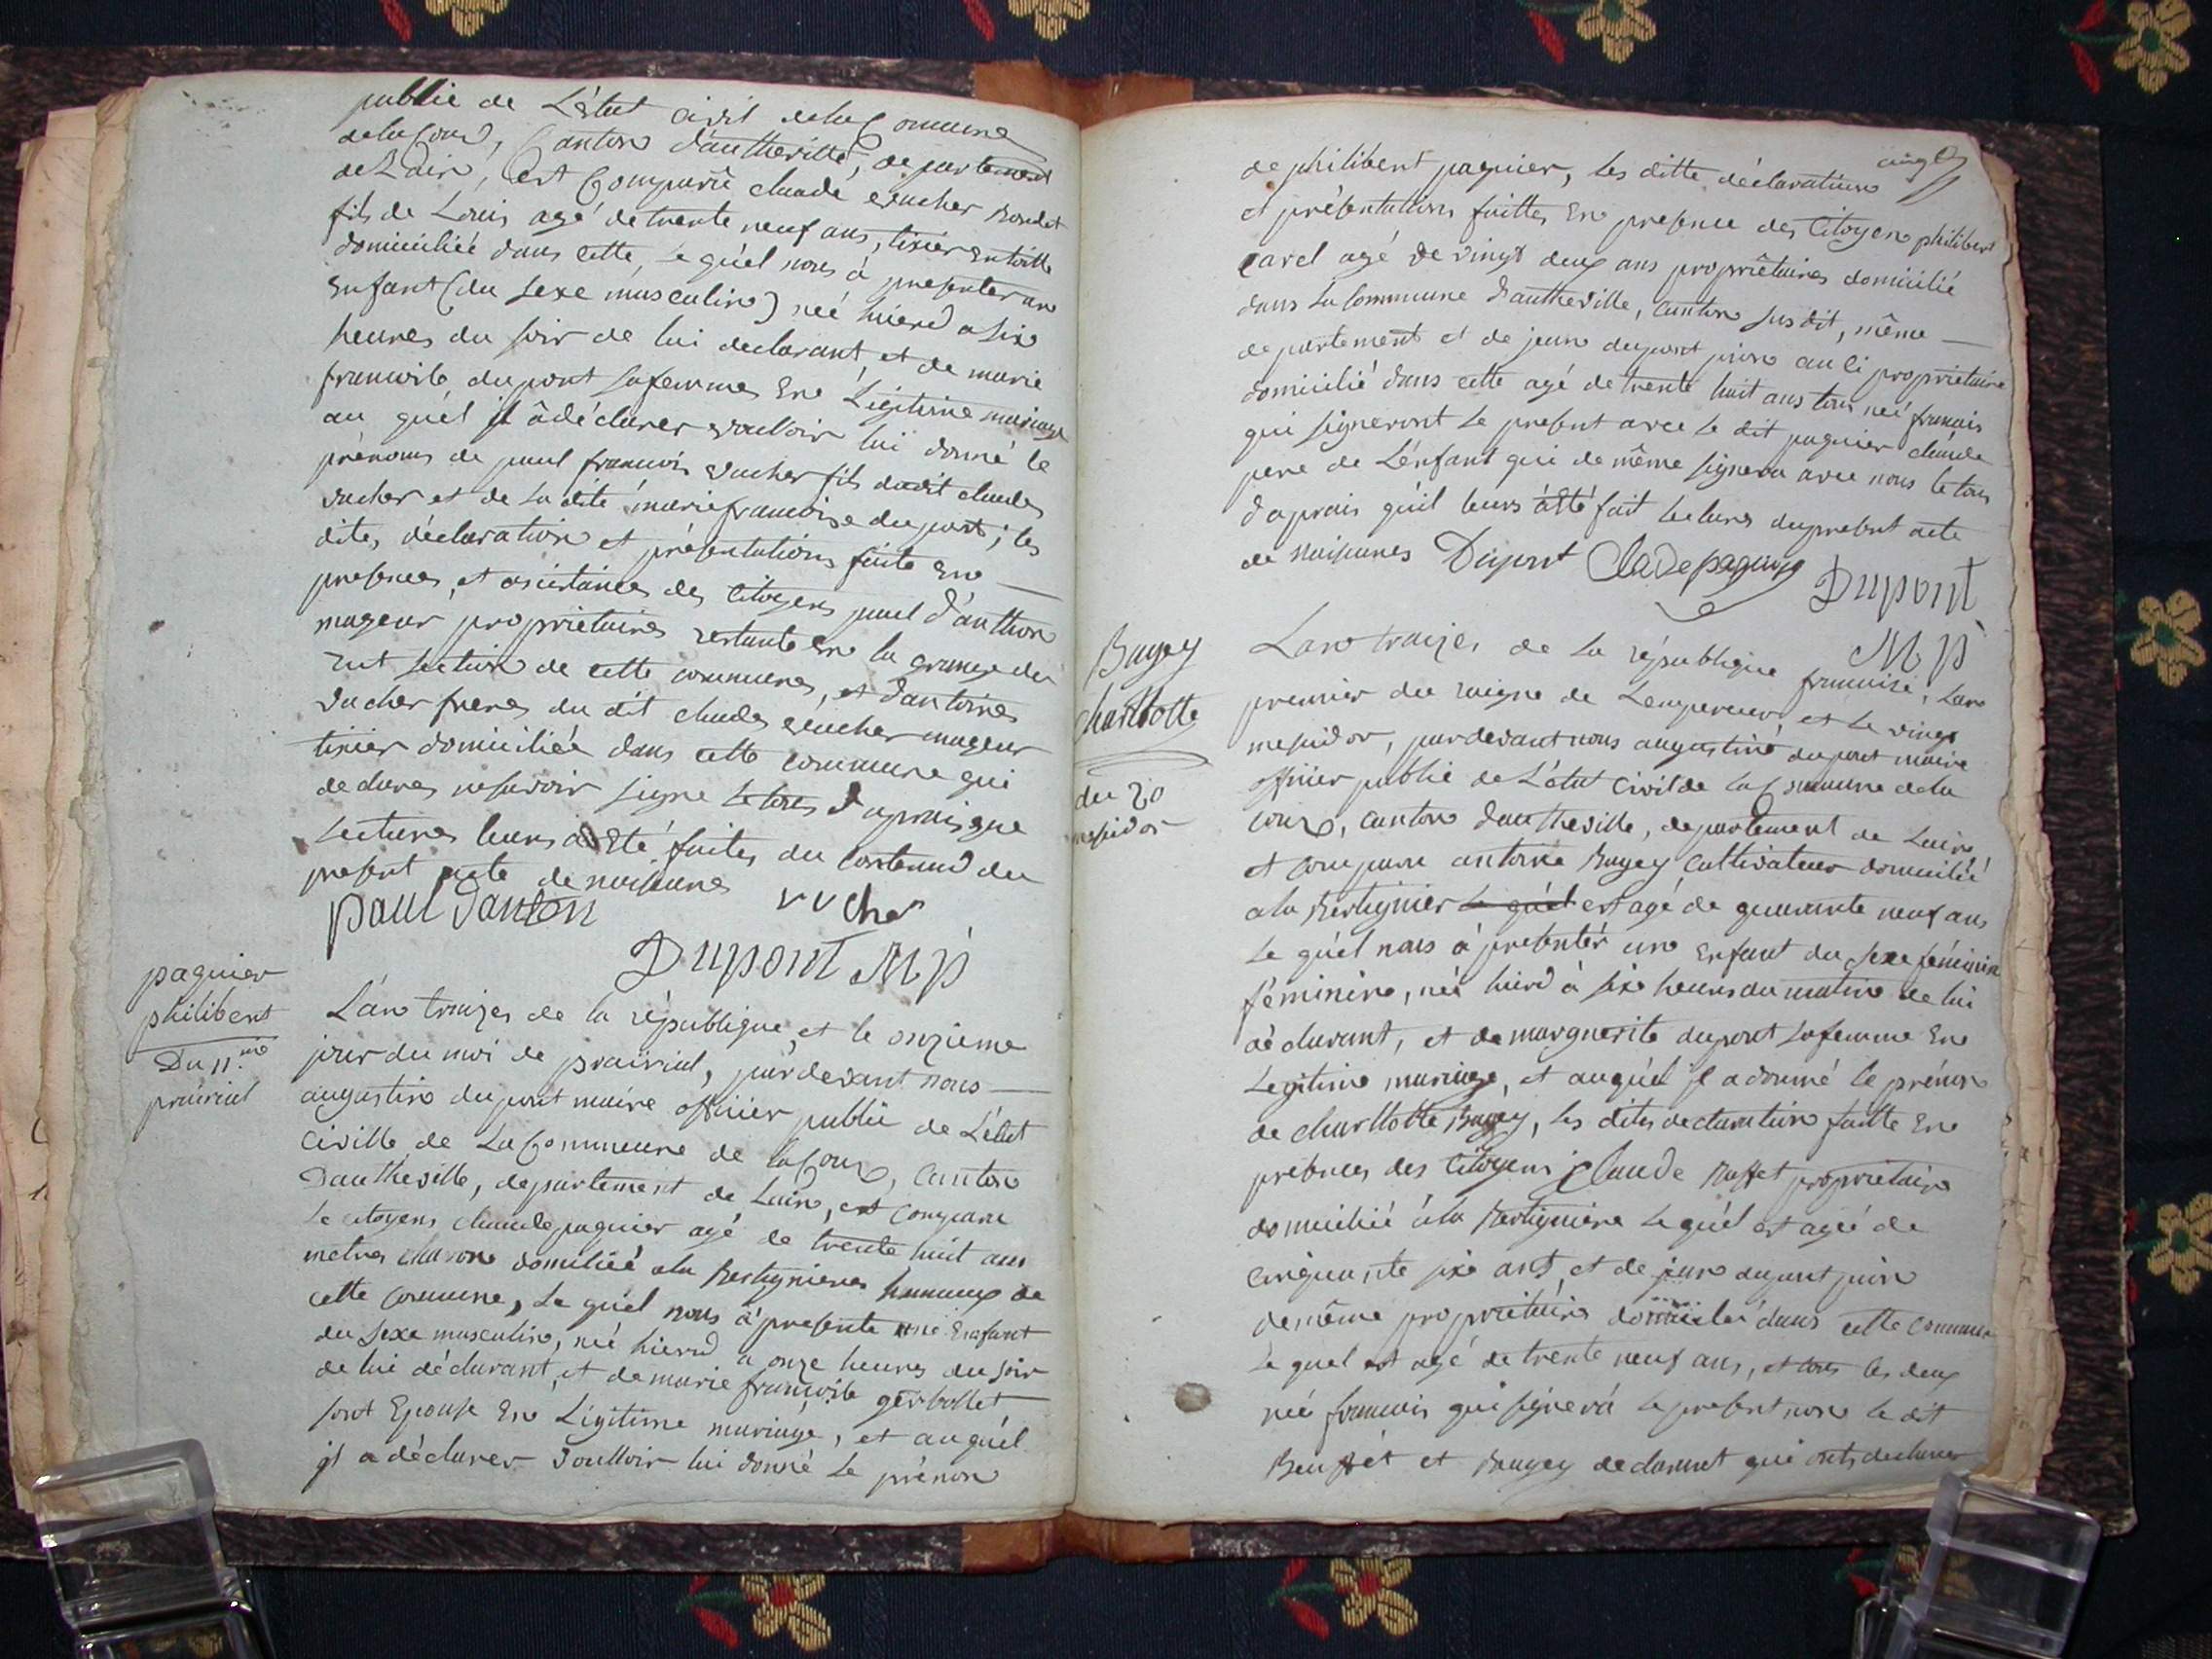 publie de L'état civil de la Commune
de la Cour, Canton d'autheville, departement
de L'ain, Est Comparû claude vucher
fils de Louis agé de trente neuf ans, tixier en toille
domiciliéé dans cette, Le quel nous à presenter un
Enfant (du sexe masculin) néé hierd a six
heures du soir de lui declarant, et de marie
francoise dupont sa femme En Légitime mariage
au quél il à déclarer voulloir lui donné le
prénoms de paul francois vucher fils dudit claude
vucher et de la dite marie francoise dupont; les
dites déclaration et présentations faite En
presences, et asistances des Citoyens paul d'anthon
mageur, propriétaires restante En la grange du
section de cette communes, et d'antoines
vucher freres du dit claude vucher mageur
tixier domiciliéé dans cette commune qui
declares ne savoir signe le tous d'aprais que
Lectures leurs a Eté faites du contenud du
present acte de naisances
paul danton vucher
Dupont M p
paguier
philibert
Du 11.me
prairial
L'an traizes de la république, et le onzieme
jour du moi de prairial, pardevant nous
augustin dupont maire officier publie de L'état
Civille de La Commune de la Cour, Canton
Dautheville, departement de Lain, est comparu
Le citoyens claude paguier agé de trente huit ans
metres charon domiciliéé a la Bertignieres hameux de
cette commune, Le quél nous à presente une Enfant
du sexe masculin, né hierd a onze heures du soir
de lui déclarant, et de marie francoise gerbollet
sont Epouse En Légitime mariage, et au quél
il a déclarer voulloir lui donné Le prénon
cinq
de philibert paguier, Les ditte déclarations
et présentations faittes En presence des Citoyen philibert
carel agé de vingt deux ans propriétaires domicilié
dans La Commune d'autheville, Canton susdit, même
departement et de jean dupont propriétaire
domicilié dans cette agé de trente huit ans tous néé francais
qui signeront Le present avec Le dit paguier claude
pere de L'énfant qui de même signera avec nous le tous
d'aprais qu'il leurs à Eté fait Lectures du present acte
de naisances Dupont Clade paguier
Dupont
M p
Bugey
charllotte
du 20
mesidor
Lan traizes de La république francaise, Lan
premier du raigne de Lempereur, et Le vingt
mesidor, pardevant nous augustine dupont maire
officier publie de L'état Civil de la Commune de la
Cour, canton d'autheville, departement de Lain
et comparu antoine Bugey cultivateur domiciliéé
a la Bertignier Le quél est agé de quarante neuf ans
Le quél nous à presentér une Enfant du sexe féminin
féminine, néé hierd à six heures du matin de lui
déclarant, et de marguerite dupont sa femme En
Legitime mariage, et au quél il a donné le prénon
de charllotte Bugey, Les dites declaration faitte En
presences des Citoyens Claude Buffet propriétaire
domiciliéé à la Bertigniere Le quél est agéé de
cinquante six ans, et de jean dupont
de même propriétaire domicilié dans cette Commune
Le quel est agé de trente neuf ans, et tous les deux
néé francais qui signerá Le present non le dit
Beuffét et Bugey declarant qui onts declares